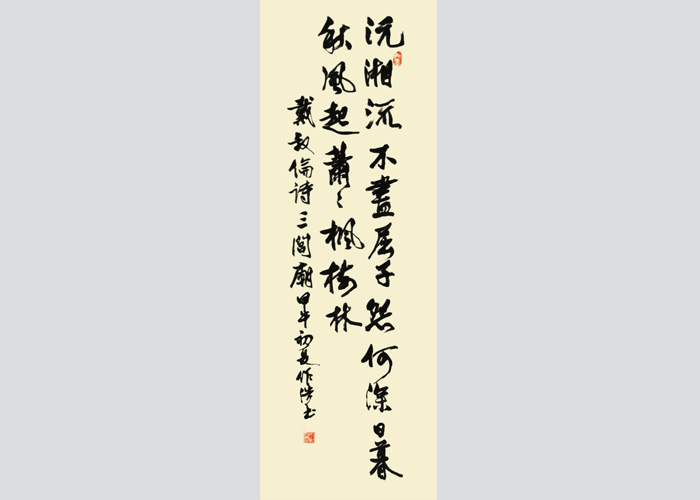 沅湘流不盡屈子怨何深日暮
秋風起蕭々楓樹林
戴叔倫诗三閭廟甲午初夏作